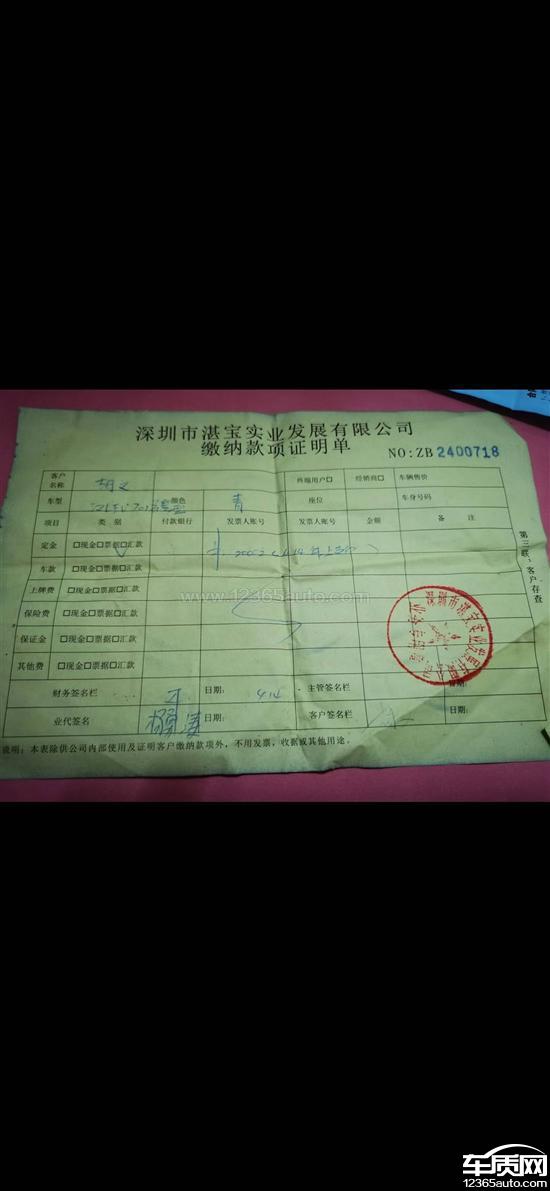 深圳市湛宝实业发展有限公司
缴纳款项证明单
NO:ZB 2400718
客户名称 终端用户口 经销商口 车辆售价
车型 颜色 青 座位 车身号码
项目 类别 付款银行 发票人账号 发票人账号 金额 备注
定金 口现金口票据口汇款
车款 口现金口票据口汇款
上牌费 口现金口票据口汇款
保险费 口现金口票据口汇款
保证金 口现金口票据口汇款
其他费 口现金口票据口汇款
财务签名栏 日期: 4.14 主管签名栏 日期:
业代签名 日期: 客户签名栏 日期:
说明:本表除供公司内部使用及证明客户缴纳款项外,不用发票,收据或其他用途。
第三联:客户存查
www.12365auto.com
车质网
12365auto.com